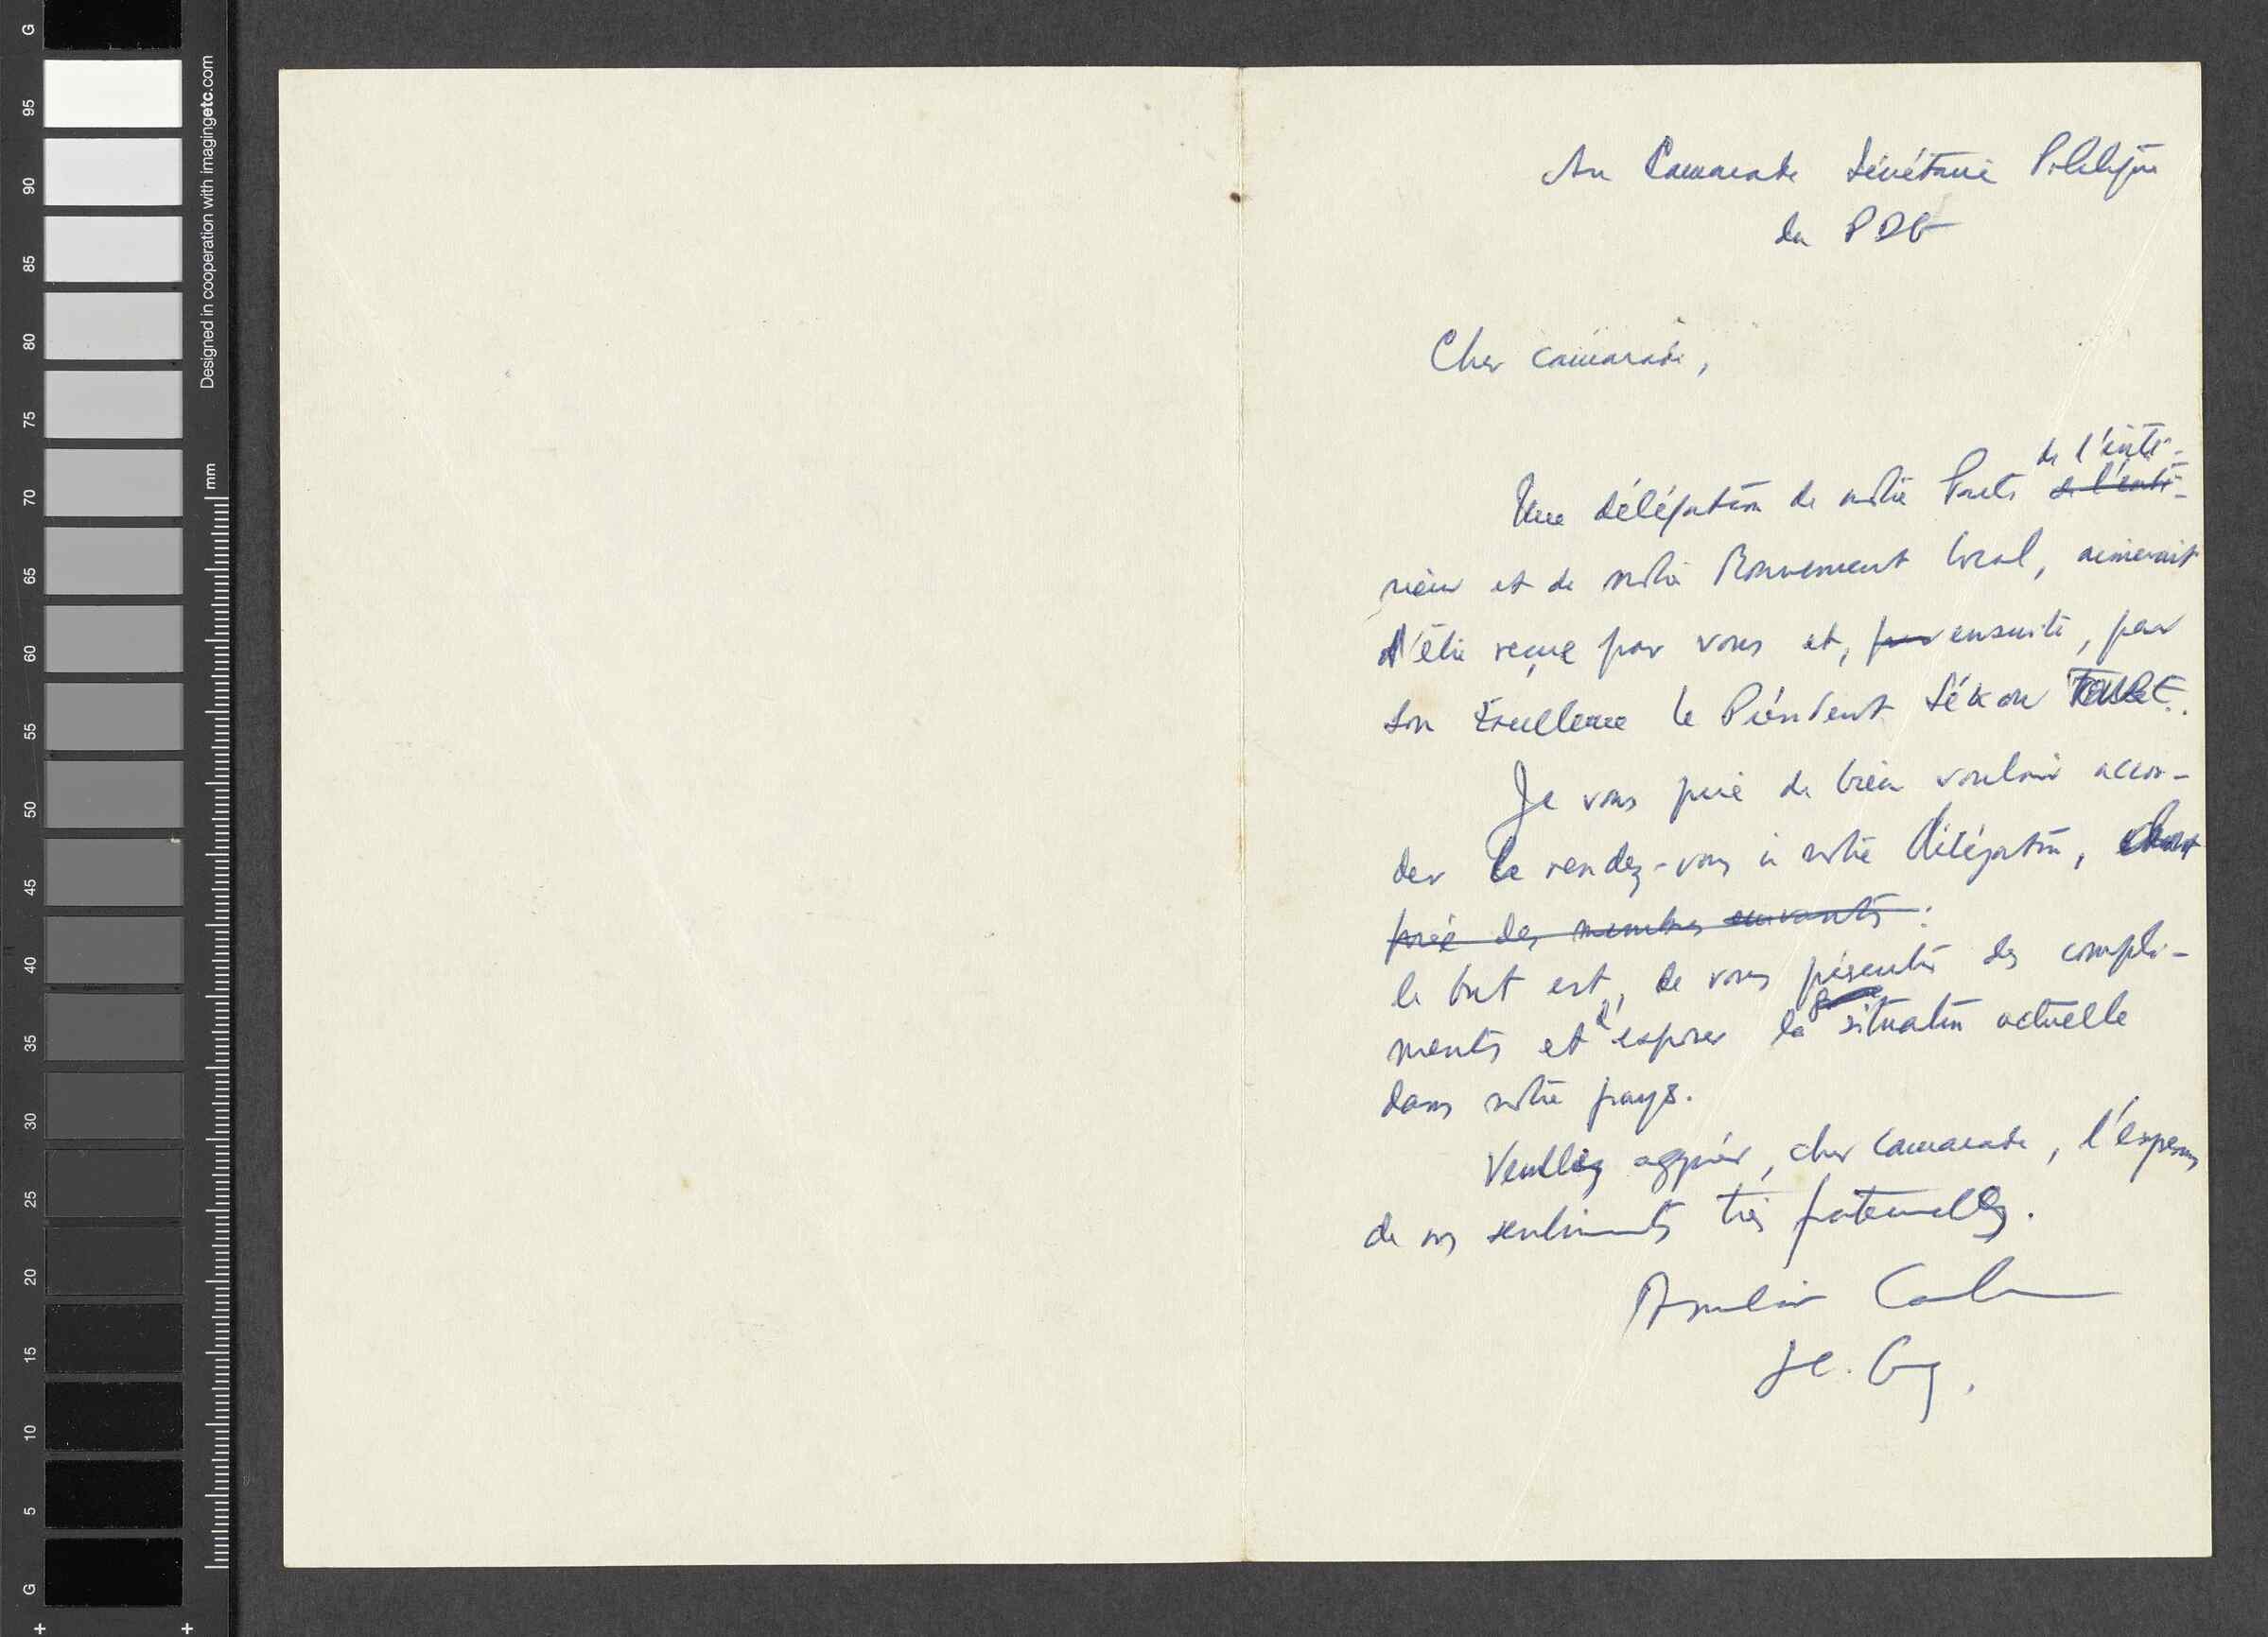 G
95
90
85
80
75
70
65
60
55
50
45
40
35
30
25
20
15
10
5
G
Designed in cooperation with imagingetc.com
mm
Au Camarade Sécrétaire Politique
du PDG
Cher camarade,
de l'inté-
Une délégation de notre Parti
rieur et de notre Mouvement local, aimerait
d'être reçue par vous et, par ensuite, par
Son Excellence le Président Sékou TOURE.
Je vous prie de bien vouloir accor-
der le rendez-vous à notre délégation, dont
des membres suivants :
le but est, de vous présenter des compli-
ments et d'exposer la situation actuelle
dans notre pays.
Veuillez agréer, cher camarade, l'expression
de nos sentiments très fraternelles.
Amilcar Cabral